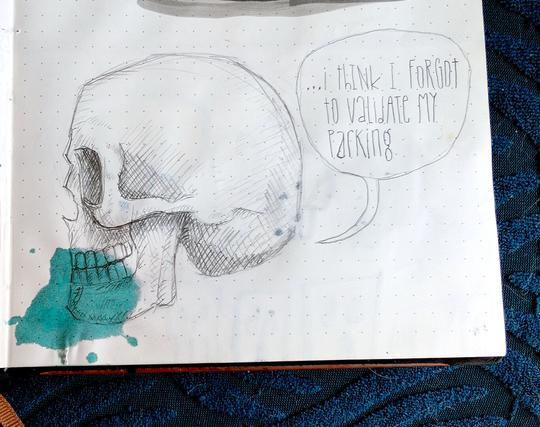 ...i thiNK I FORGOt
to ValidATE MY
parking.